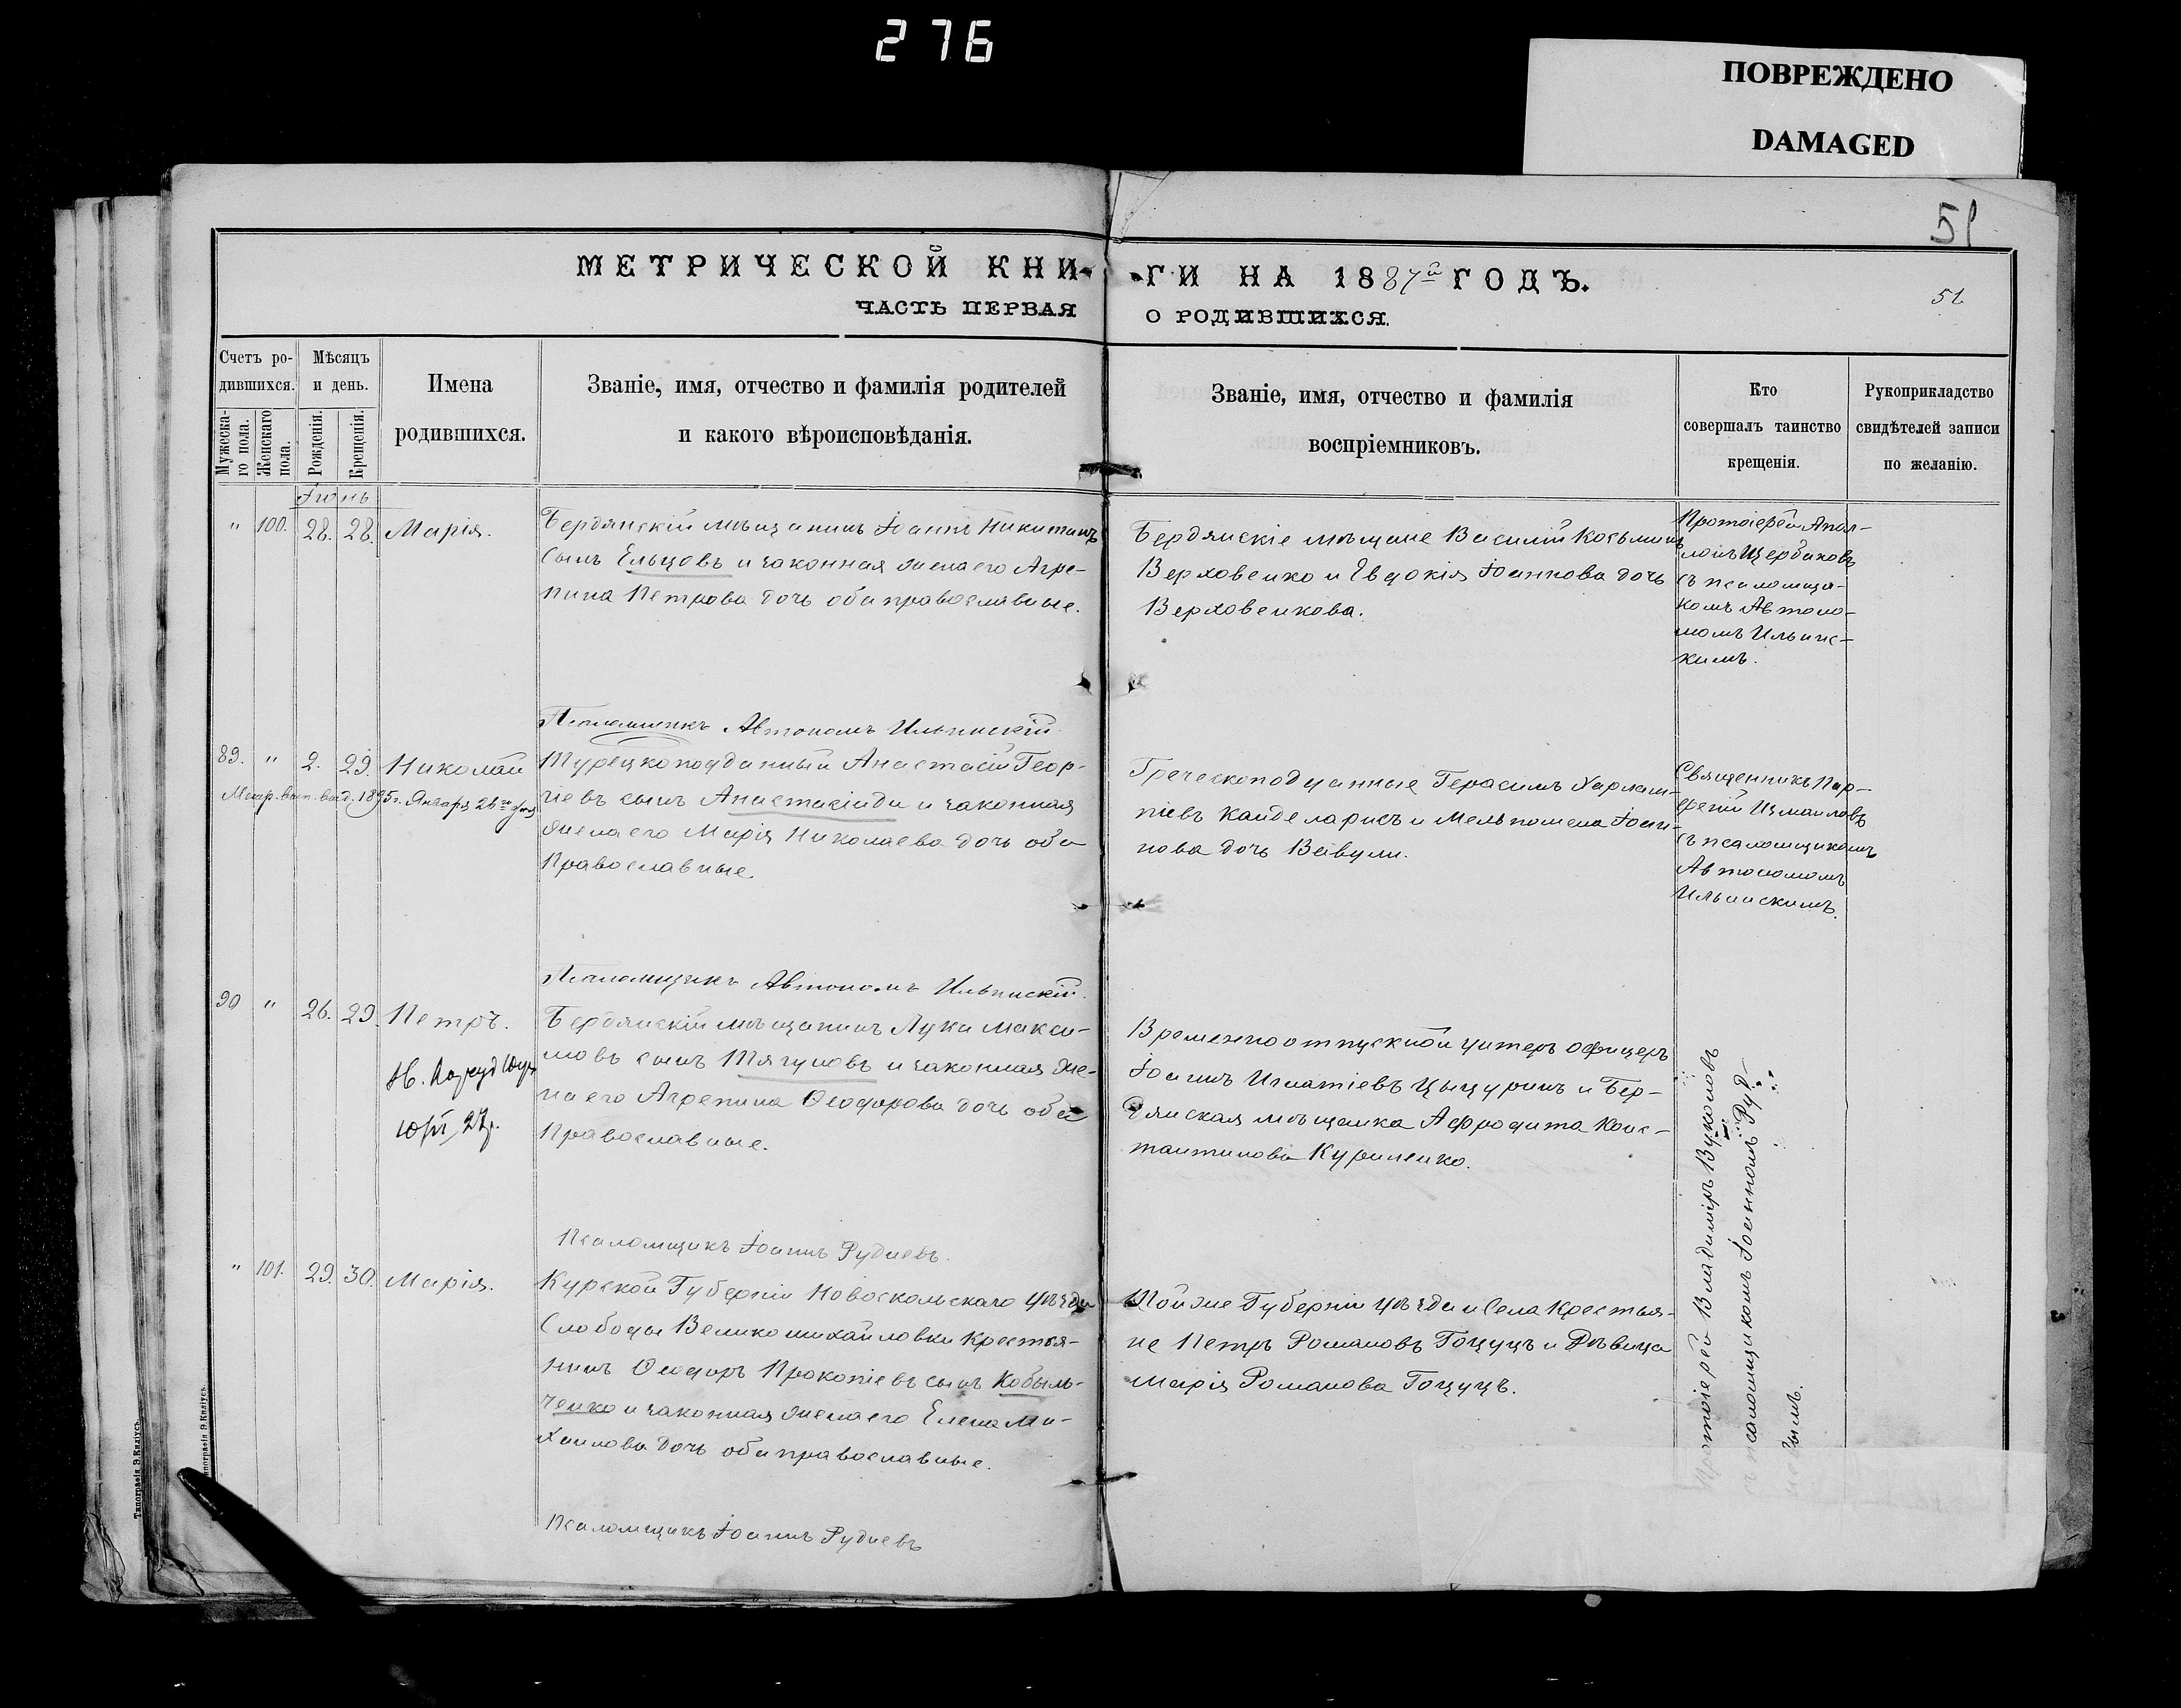 276
ПОВРЕЖДЕНО
DAMAGED
51
МЕТРИЧЕСКОЙ КНИ-
-ГИ НА 1887й ГОДЪ.
51
ЧАСТЬ ПЕРВАЯ
О РОДИВШИХСЯ.
Счетъ ро-
дившихся.
Мужеска-
го пола.
Женскаго
пола.
Мѣсяцъ
и день.
Рожденія.
Крещенія.
Имена
родившихся.
Званіе, имя, отчество и фамилія родителей
и какого вѣроисповѣданія.
Званіе, имя, отчество и фамилія
воспріемниковъ.
Кто
совершалъ таинство
крещенія.
Рукоприкладство
свидѣтелей записи
по желанію.
Іюнь
" 100. 28. 28. Марія.
Бердянскій мѣщанинъ Іоаннъ Никитинъ
сынъ Ельцовъ и законная жена его Агре-
пина Петрова дочь оба православные.
Бердянскіе мѣщане Василій Косьминъ
Верховенко и Евдокія Іоаннова дочь
Верховенкова.
Протоіерей Апол-
лонъ Щербаковъ
съ псаломщи-
комъ Автоно-
момъ Ильинс-
кимъ.
Псаломщикъ Автономъ Ильинскій
89. " 2. 29. Николай
Метр. вып. выд. 1895 г. Января 26 го дня
Турецкоподданный Анастасій Геор-
гіевъ сынъ Анастасіади и законная
жена его Марія Николаева дочь оба
Православные.
Греческоподданные Герасимъ Харлам-
піевъ Канделарисъ и Мельпомена Іоан-
нова дочь Вавули.
Священникъ Пар-
феній Измаиловъ
съ псаломщикомъ
Автономомъ
Ильинскимъ.
Псаломщикъ Автономъ Ильинскій.
90 " 26. 29. Петръ.
27
Бердянскій мѣщанинъ Лука Макси-
мовъ сынъ Тягуновъ и законная же-
на его Агрепина Ѳеодорова дочь оба
Православные.
Временноотпускной унтеръ офицеръ
Іоаннъ Игнатіевъ Цыцуринъ и Бер-
дянская мѣщанка Афродита Конс-
тантинова Куриленко.
Протоіерей Владиміръ Вуколовъ
съ псаломщикомъ Іоанномъ Руд-
невымъ.
Псаломщикъ Іоаннъ Рудневъ.
" 101. 29. 30. Марія.
Курской Губерніи Новоскольскаго Уѣзда
Слободы Великомихайловки Крестья-
нинъ Ѳеодоръ Прокопіевъ сынъ Кобыль-
ченко и законная жена его Елена Ми-
хаилова дочь оба православные.
Той же Губерніи Уѣзда и Села Крестья-
не Петръ Романовъ Гоцуцъ и Дѣвица
Марія Романова Гоцуцъ.
Псаломщикъ Іоаннъ Рудневъ
Типографія Э. Килусъ.
Типографія Э. Килусъ.